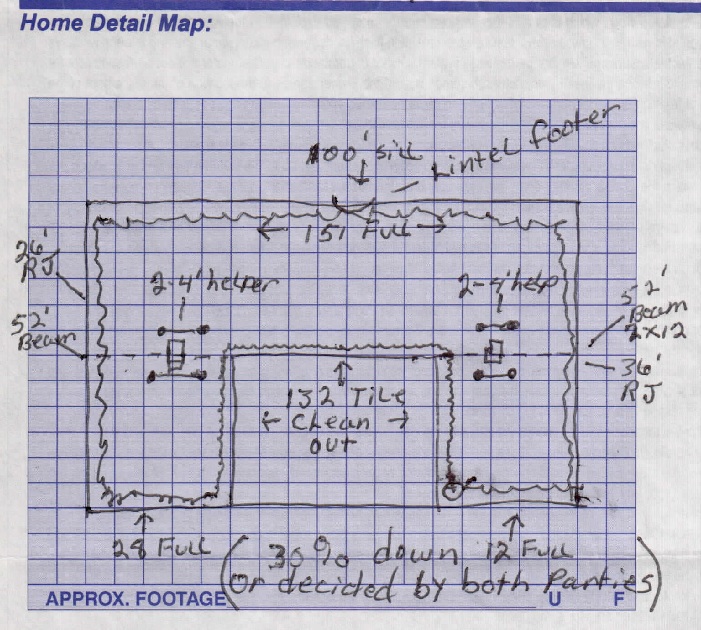 Home Detail Map:
100' sill
Lintel footer
151 Full
26'
RJ
2-4' helper
2-4' help
52'
Beam
52'
Beam
2x12
36'
RJ
132 Tile
Clean
out
28 Full
12 Full
(30% down
or decided by both Parties)
APPROX. FOOTAGE U F